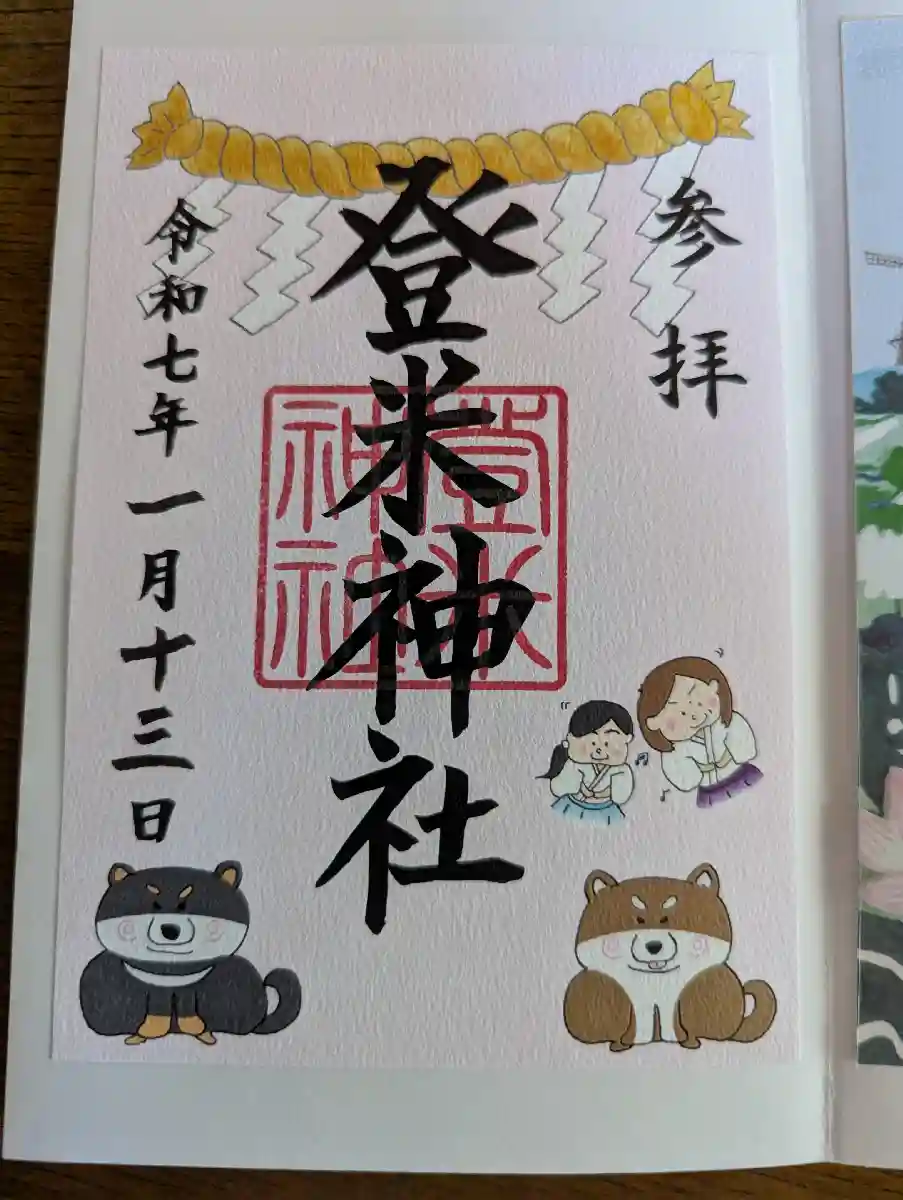 参拝
登米神社
登米神社
令和七年一月十三日